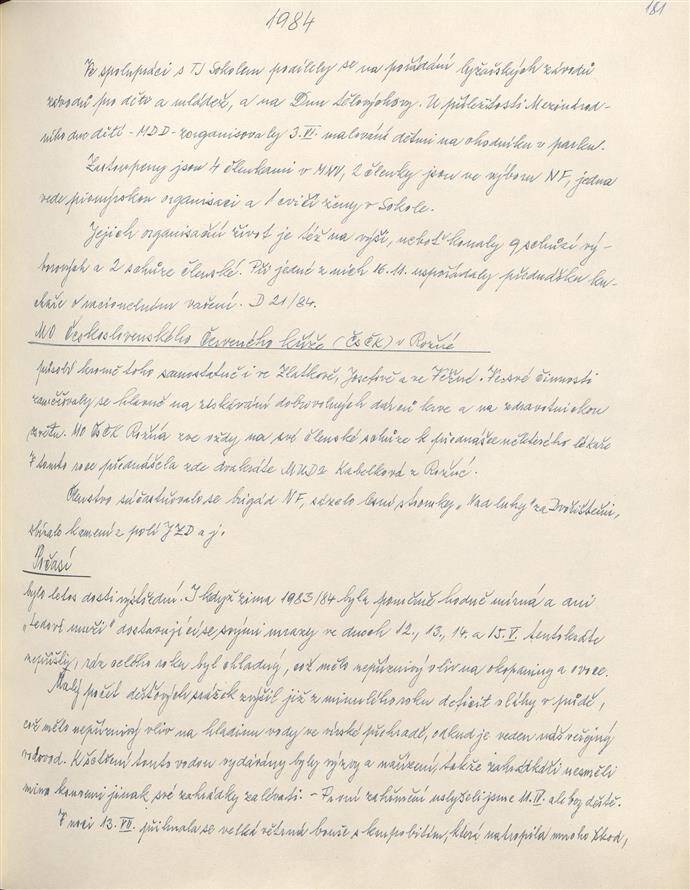 181
1984
Ve spolupráci s TJ Sokolem podílely se na pořádání lyžařských závodů
závodů pro děti a mládež, a na Dnu tělovýchovy. U příležitosti Mezinárod-
ního dne dětí - MDD - zorganisovaly 3.VI. malování dětmi na chodníku v parku.
Zastoupeny jsou 4 členkami v MNV, 2 členky jsou ve výboru NF, jedna
vede pionýrskou organisaci a 1 cvičí ženy v Sokole.
Jejich organisační život je též na výši, neboť konaly 9 schůzí vý-
borových a 2 schůze členské. Při jedné z nich 16.11. uspořádaly přednášku ku-
chaře o racionelním vaření. D 21/84.
MO Československého Červeného kříže (ČSČK) v Rožné
působí kromě toho samostatně i ve Zlatkově, Josefově a ve Věžné. Ve své činnosti
zaměřovaly se hlavně na získávání dobrovolných dárců krve a na zdravotnickou
MO ČSČK Rožná zve vždy na své členské schůze k přednášce některého lékaře
V tomto roce přednášela zde dvakráte MUDr Kabelková z Rožné.
Členstvo súčastňovalo se brigád NF, sázelo lesní stromky "Nad luhy" za Dvořištěm,
sbíralo kamení z polí JZD aj.
Počasí
bylo letos dosti výstřední. I když zima 1983/84 byla poměrně hodně mírná a ani
"ledoví muži" dostavující se svými mrazy ve dnech 12., 13., 14. a 15.V. tentokráte
nepřišly, ráz celého roku byl chladný, což mělo nepříznivý vliv na okopaniny a ovoce.
Malý počet dešťových srážek zvýšil již z minulého roku deficit vláhy v půdě,
což mělo nepříznivý vliv na hladinu vody ve vírské přehradě, odkud je veden náš veřejný
vodovod. K šetření touto vodou vydávány byly výzvy a nařízení, takže zahrádkáři nesměli
mimo konvemi jinak své zahrádky zalévati. - První zahřmění uslyšeli jsme 11.IV. ale bez deště.
V noci 13.VII. přihnala se velká větrná bouře s krupobitím, která natropila mnoho škod,